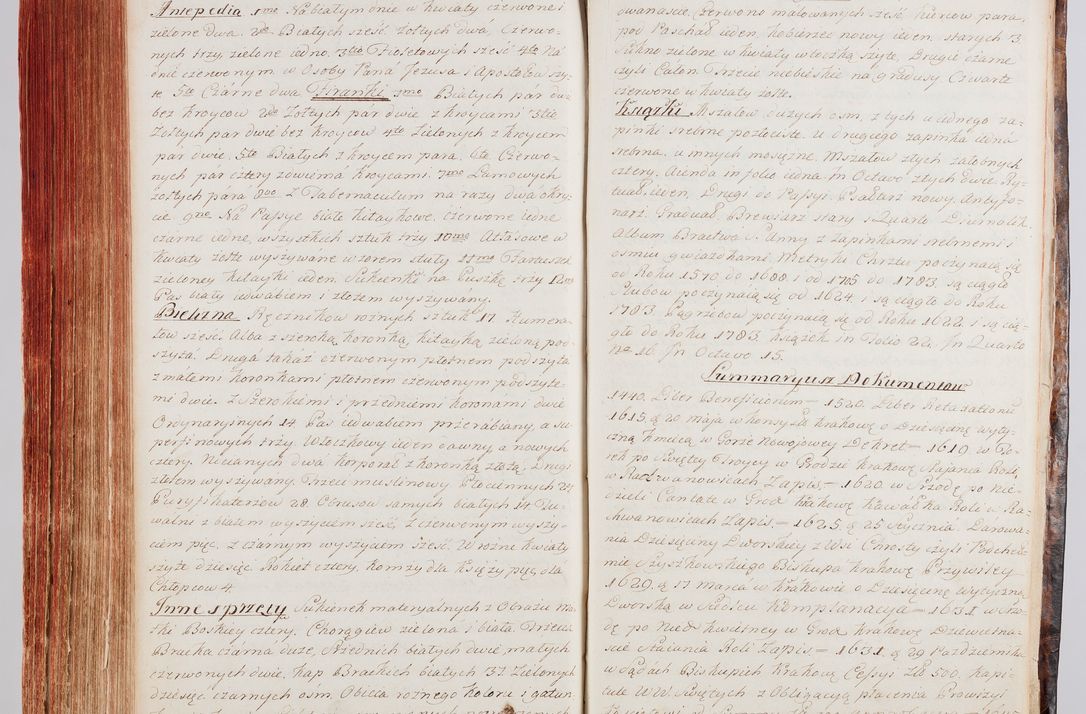 Antepedia 1mo Na białym dnie w kwiaty czerwone i
zielone dwa. 2do Białych sześć. żołtych dwá, Czerwo-
nych trzy, zielone iedno. 3tio Fioletowych sześć 4to Ná
dnie czerwonym w Osoby Paná Jezusa i Apostołow szy-
te 5to Czarne dwa Firanki 1mo Białych pár dwie
bez kroycow 2do Żołtych pár dwie z kroycami 3tio
Żołtych pár dwie bez kroycow 4to Zielonych z kroycem
pár dwie. 5to Białych z kroycem para. 6to Czerwo-
nych par cztery zowiema kroycami. 7mo Lamowych
żołtych pára 8vo Z Tabernaculum na razy dwá okry-
cie 9no Ná Passye białe kitaykowe, czerwone iedne
czarne iedne, wszystkich sztuk trzy 10mo Atłasowe w
kwiaty żołte wyszywane wzorem stuły 11mo
zieloney kitayki ieden. Sukienki na Puszkę trzy
Pas biały iedwabiem i złotem wyszywany.
Bielizna Ręcznikow rożnych sztuk 17. Humera-
łow sześć. Alba z szeroką koronką, kitayką zieloną pod-
szyta. Druga takaż czerwonym płotnem podszyta
z małemi koronkami płotnem czerwonym podszyte-
mi dwie. z Szerokiemi i przedniemi koronámi dwie
Ordynaryinych 14 Pas iedwabiem przerabiany, a su-
perfinowych trzy. Włoczkowy ieden dawny, a nowych
cztery. Nicianych dwá korporał z koronką złotą, Drugi
złotem wyszywany. Trzeci muslinowy Płociennych 24
Puryfikaterzow 28. Obrusow samych białych 14. Tu-
walni z białem wyszyciem sześć. Z czerwonym wyszy-
ciem pięć. z czarnym wyszyciem sześć. W rożne kwiaty
szyte dziesięć. Rokiet cztery, komży dla Księży pięć, dla
Chłopcow 4.
Inne sprzęty Sukienek materyalnych z Obrazu Ma-
tki Boskiey cztery. Chorągiew zielona i biała. Trzecia
Bracka czarna duże, Srednich białych dwie, małych
czerwonych dwie. Kap Brackich białych 31. Zielonych
dziesięć, czarnych osm. Obicia rożnego koloru i gatun-
gwanascie. Czerwono malowanych sześć. Kiercow para,
pod Paschał ieden. Kobierzec nowy ieden, starych 3.
Sukno zielone w kwiaty włoczką szyte, Drugie czarne
czyli Całon Trzecie niebieskie na gradusy Czwarte
czerwone w kwiaty żołte.
Książki Mszałow duzych osm, z tych u iednego za-
pinki srebrne pozłociste, u drugiego zapinka iedna
srebrna, u innych mosięzne. Mszałow złych załobnych
cztery, Agenda in folio iedna in Octavo złych dwie. Ry-
tuał ieden, Drugi do Passyi. Psałtarz nowy, Antyfo-
narz. Graduał, Brewiarz stary in Quarto
Album Bractwá S. Anny z zapinkami srebrnemi i
osmiu gwiazdkami, Metryki Chrztu poczynaią się
od Roku 1570. do 1688. i od 1705 do 1783. są ciągłe
Slubow poczynaią się od 1624. i są ciągłe do Roku
1783. Pogrzebow poczynaią się od Roku 1622. i są cią-
głe do Roku 1783. Książek in Folio 26. In Quarto
16. In Octavo 15.
Summaryusz Dokumentow
1440. Liber Beneficiorum — 1529. Liber Retaxationum
1615. d. 20 maja w Konsystr Krakow o Dziesięcinę wyty-
czną Kmiecą w Gorze Nowojowey Dekret — 1619. w Po-
sek po Swiętey Troycy w Grodzie Krakow Naiania Roli
w Racławánowicach Zapis — 1620. w Srzodę po Nie-
dzieli Cantate w Grod Krakow Kawałka Roli w Ra-
chwanowicach Zapis — 1625. d. 25 Stycznia. Darowa-
nia Dziesięciny Dworskiey z Wsi Chrosty czyli
mie Szyszkowskiego Biskupa Krakow Przywiley
1629. d. 17 marca w Krakowie o Dziesięcinę wytyczną
Dworską w Komplanacya — 1631. w Srzo-
dę po Nied Kwietney w Grod Krakow
Naiania Roli Zapis — 1631. d. 29 Pazdziernika
w Sądach Biskupich Krakow Cessyi Zł 500. Kapi-
tule WW. Swiętych z Obligacyą płacenia Prowizyi